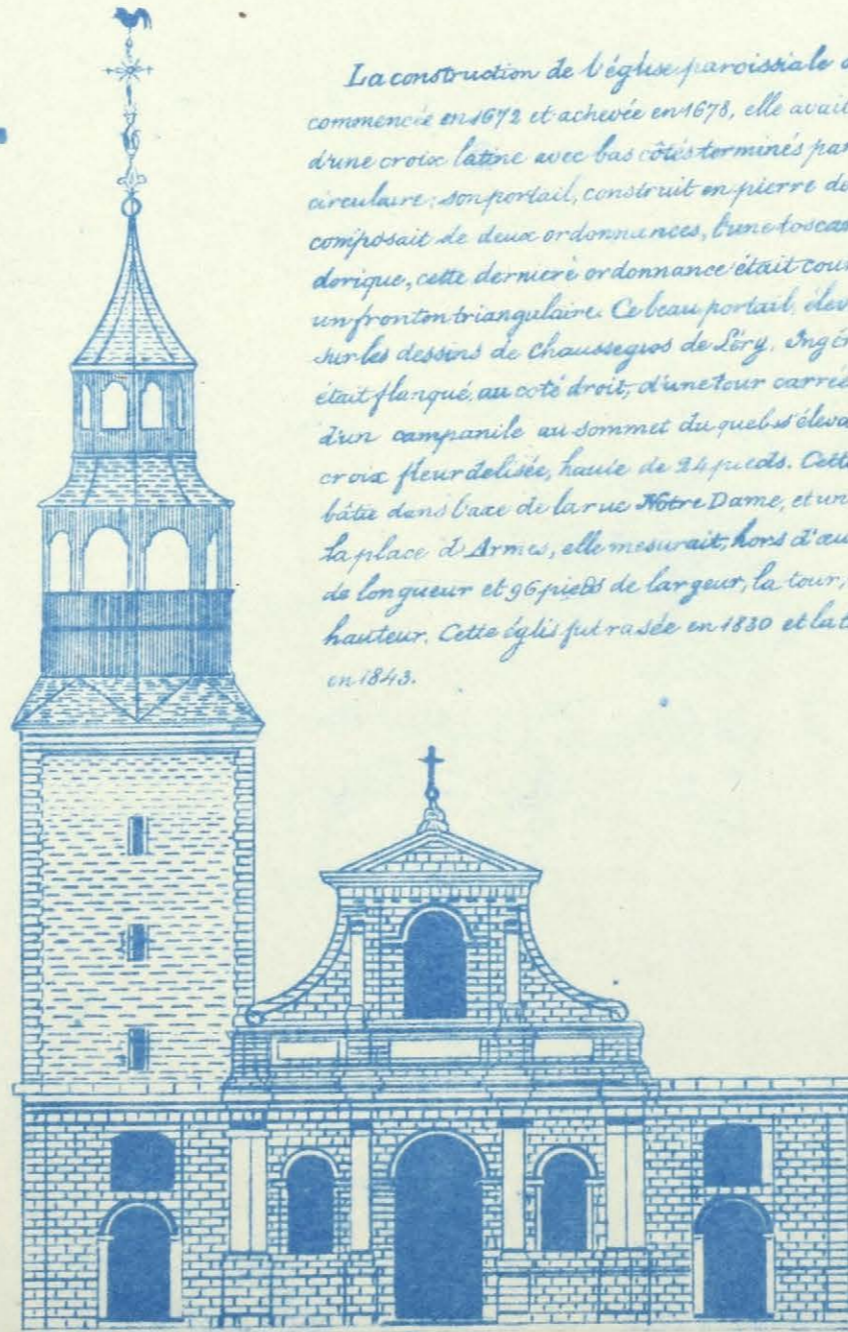 La construction de l'église paroissiale d
commencée en 1672 et achevée en 1678, elle avait
d'une croix latine avec bas côtés terminés par
circulaire; son portail, construit en pierre de
composait de deux ordonnances, l'une toscan
dorique, cette dernière ordonnance était cour
un fronton triangulaire. Ce beau portail, élev
sur les dessins de Chaussegros de Léry, Ingén
était flanqué, au coté droit, d'une tour carrée
d'un campanile au sommet du quel s'éleva
croix fleurdelisée, haute de 24 pieds. Cette
bâtie dans l'axe de la rue Notre Dame, et un
la place d'Armes, elle mesurait, hors d'œu
de longueur et 96 pieds de largeur, la tour,
hauteur. Cette églis fut rasée en 1830 et la t
en 1843.